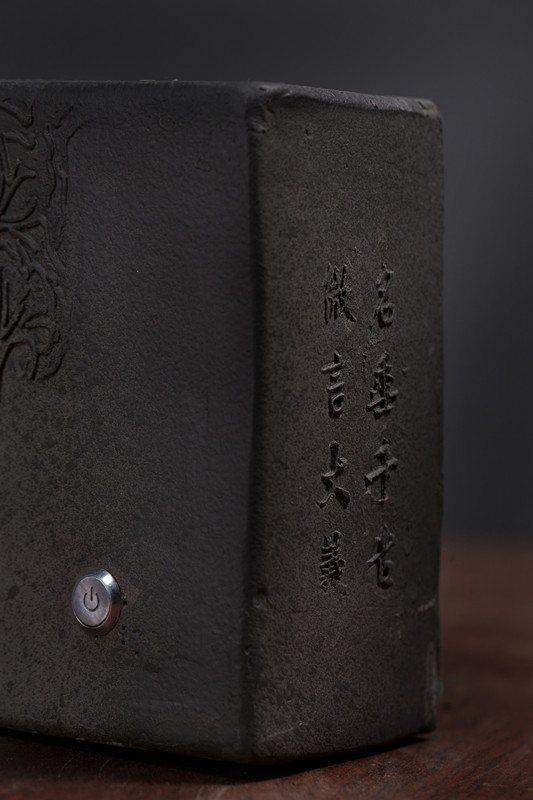 名垂千古
微言大義